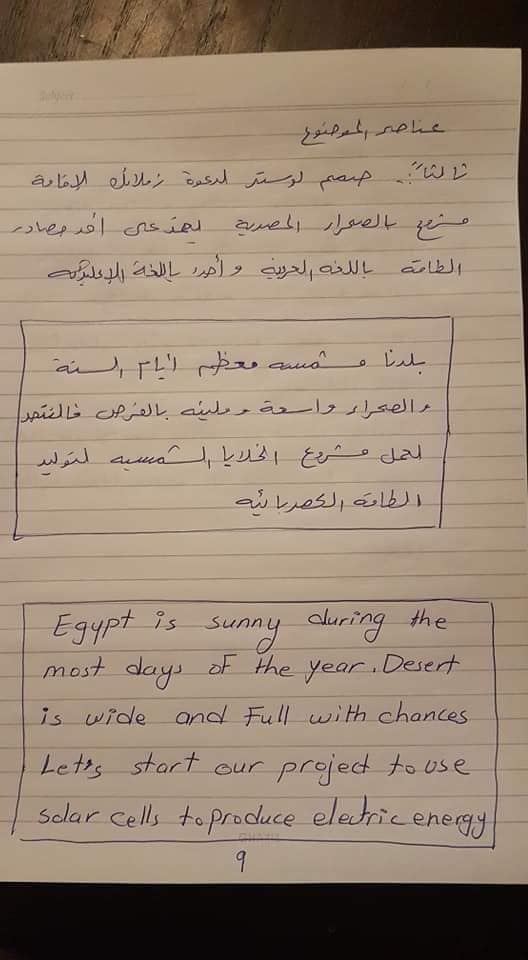 Subject
عناصر الموضوع
ثالثاً:. صمم بوستر لدعوة زملائك لإقامة
مشروع بالصحراء المصرية يعتمد على أحد مصادر
الطاقة باللغة العربية وأخر باللغة الإنجليزية
بلدنا مشمسه معظم أيام السنة
والصحراء واسعة ومليئه بالفرص فالنتحد
لعمل مشروع الخلايا الشمسيه لتوليد
الطاقة الكهربائيه
Egypt is sunny during the
most days of the year. Desert
is wide and Full with chances
Let's start our project to use
solar cells to produce electric energy
9